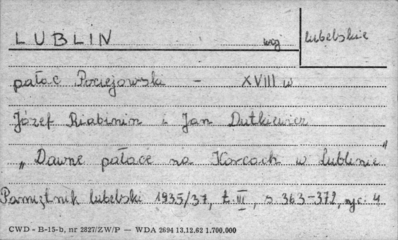 LUBLIN woj lubelskie
pałac Pociejowski – XVIII w
Józef Riabinin i Jan Dutkiewicz
„Dawne pałace na Korcach w Lublinie"
Pamiętnik lubelski 1935/37, t. III, s 363-372, ryc. 4
CWD - B-15-b, nr 2827/ZW/P — WDA 2694 13.12.62 1.700.000